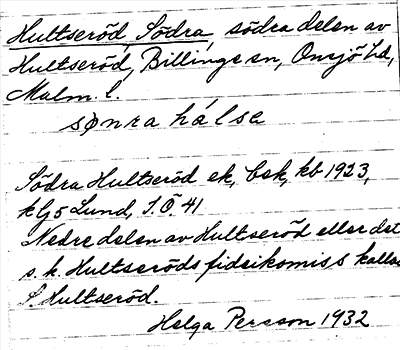 Hultseröd, Södra, södra delen av
Hultseröd, Billinge sn, Onsjö hd,
Malm. l.
sønra hálsa
Södra Hultseröd ek, bsk, kb 1923,
kG5 Lund, S.Ö. 41
Nedre delen av Hultseröd eller det
s. k. Hultseröds fideikomiss kallas
S. Hultseröd.
Helga Persson 1932